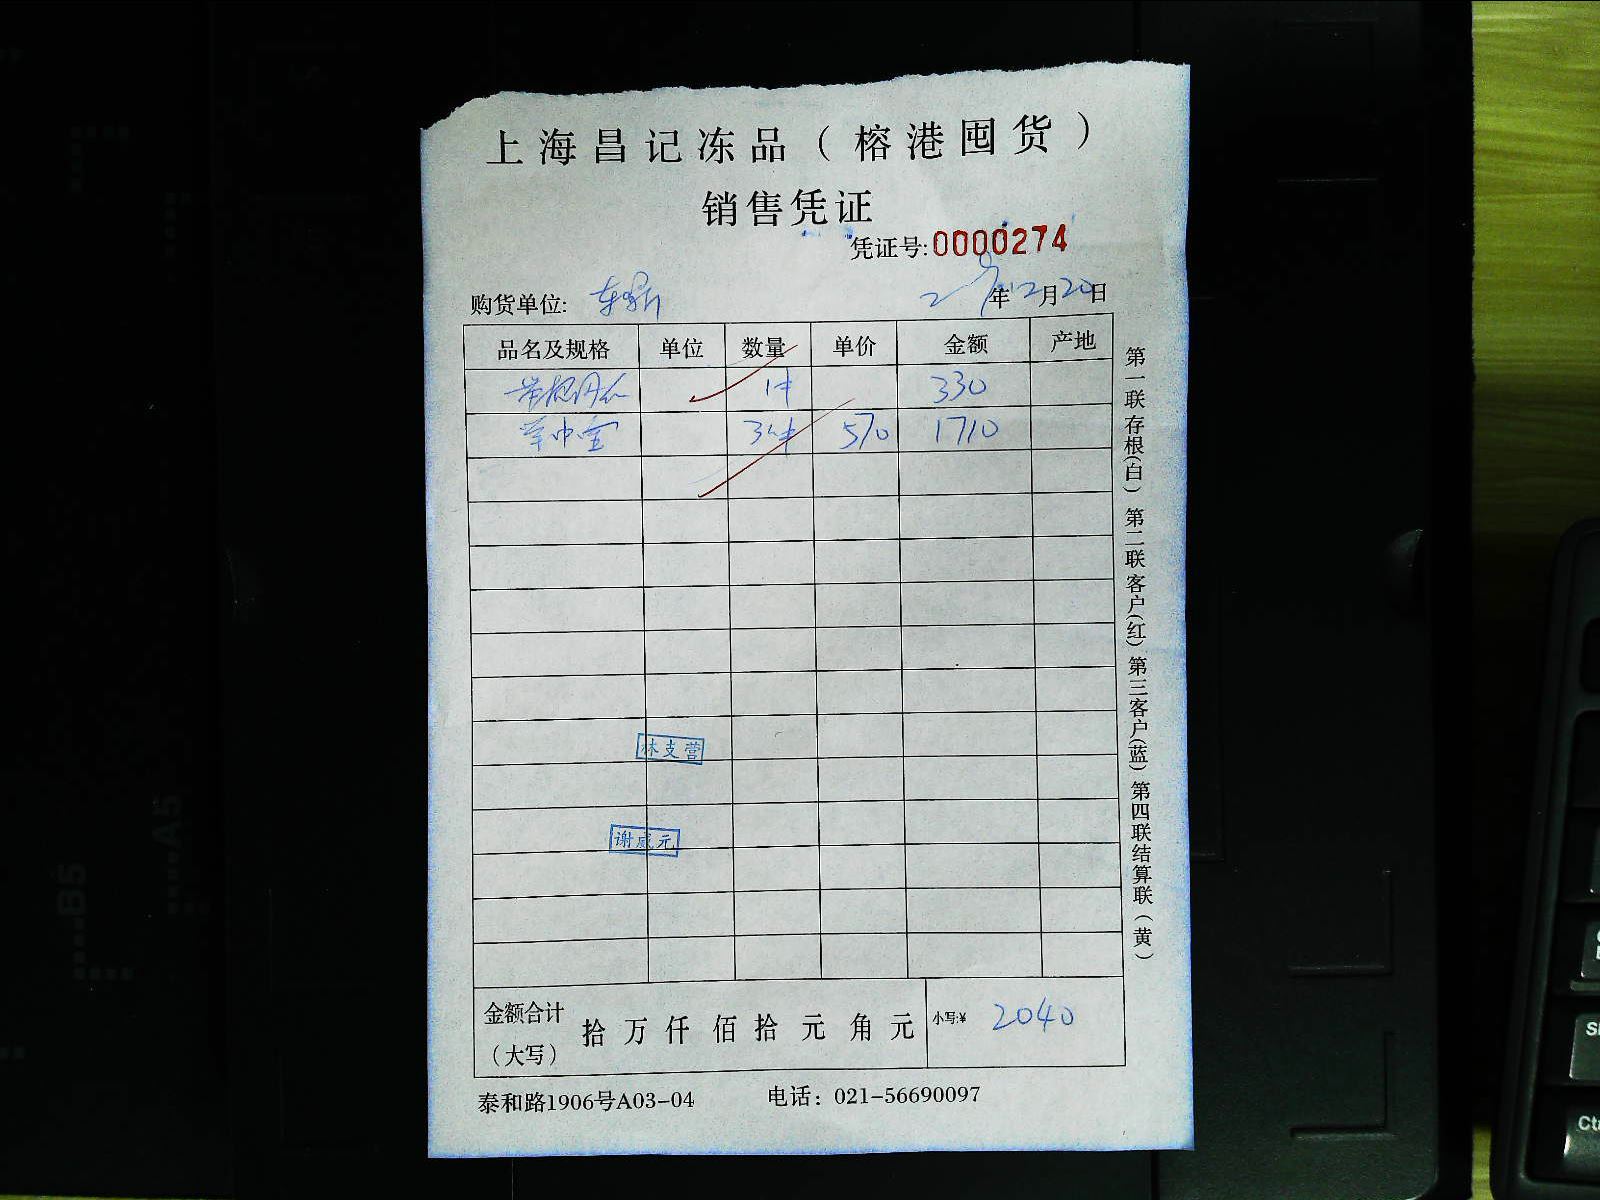 上海昌记冻品（榕港囤货）
销售凭证
凭证号:0000274
购货单位:
年12月20日
品名及规格 单位 数量 单价 金额 产地
1件 330
草中宝 3件 570 1710
林支营
谢成元
金额合计（大写） 拾万仟佰拾元角元 小写:¥ 2040
泰和路1906号A03-04 电话：021-56690097
第一联存根(白) 第二联客户(红) 第三客户(蓝) 第四联结算联(黄)
B5
A5